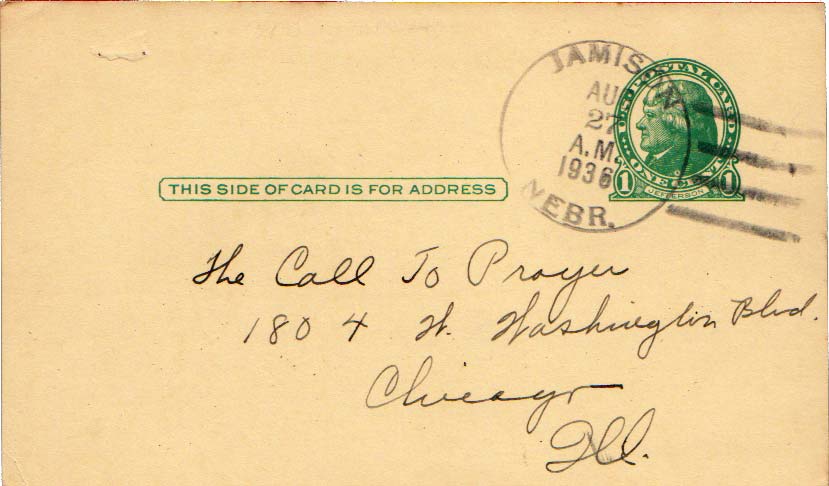 JAMISON
AUG
27
A.M.
1936
NEBR.
U.S. POSTAL CARD
ONE CENT
1 JEFFERSON 1
THIS SIDE OF CARD IS FOR ADDRESS
The Call To Prayer
1804 W. Washington Blvd.
Chicago
Ill.